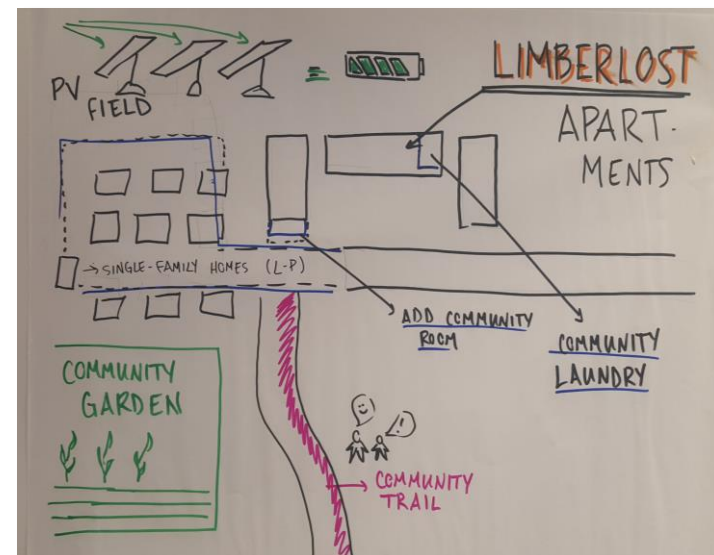 LIMBERLOST
APART-
MENTS
PV
FIELD
→ SINGLE-FAMILY HOMES (L-P)
ADD COMMUNITY
ROOM
COMMUNITY
LAUNDRY
COMMUNITY
GARDEN
!
COMMUNITY
TRAIL